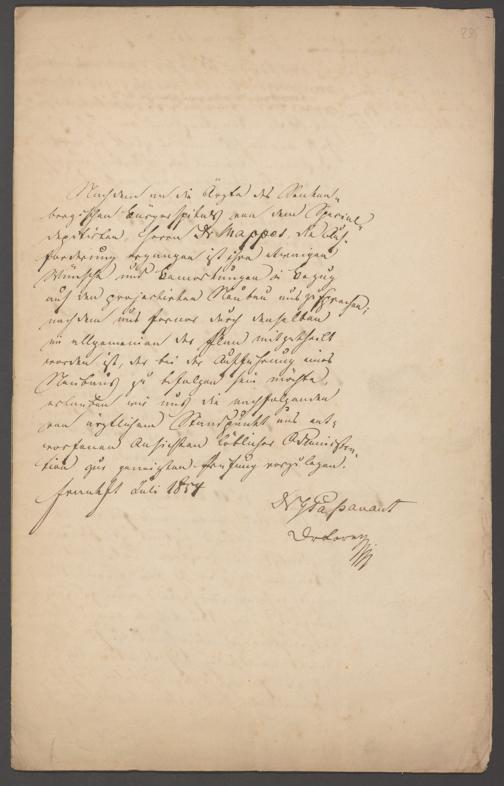 235
Nachdem an die Ärzte des Senken-
bergischen Bürgerspitals von dem Special-
deputirten, Herrn Dr Mappes, die Auf-
forderung ergangen ist ihre etwaigen
Wünsche und Bemerkungen in Bezug
auf den projectirten Neubau auszusprechen;
nachdem uns ferner durch denselben
im allgemeinen der Plan mitgetheilt
worden ist, der bei der Ausführung eines
Neubaus zu befolgen sein möchte,
erlauben wir uns die nachfolgenden
vom ärztlichen Standpunkt aus ent-
worfenen Ansichten löblicher Administra-
tion zur geneigten Prüfung vorzulegen.
Frankft Juli 1854
Dr G Passavant
Dr Lorey